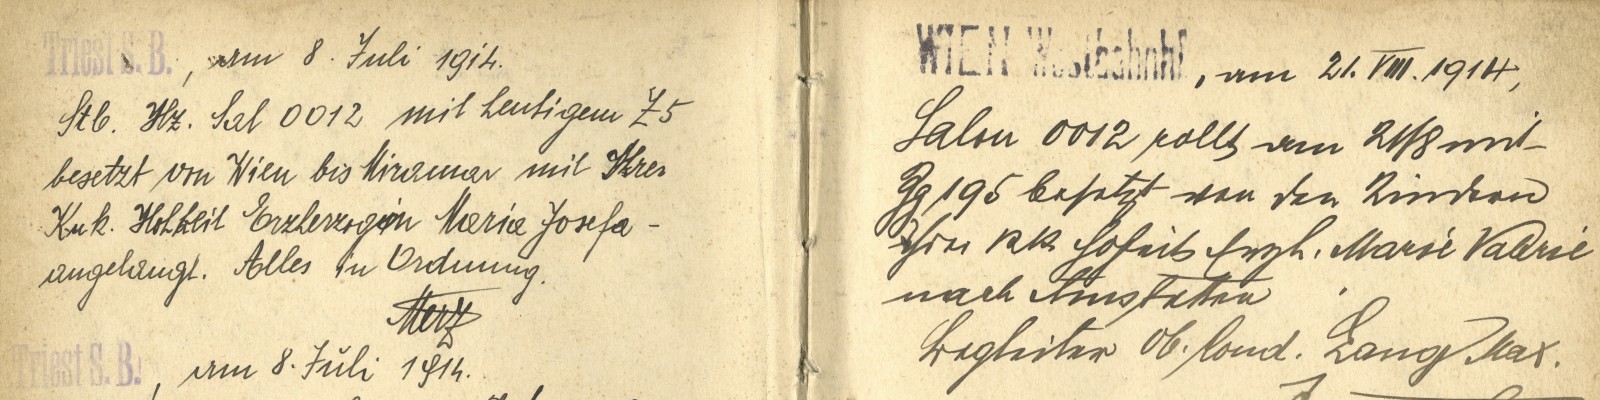 Triest S. B. , am 8. Juli 1914.
Stb. Hz. Sal 0012 mit heutigem Z5
besetzt von Wien bis Miramar mit Ihrer
K.u.k. Hohheit Erzherzogin Maria Josefa -
angelangt. Alles in Ordnung.
Merz
Triest S. B. , am 8. Juli 1914.
WIEN Westbahnhf , am 21. VIII. 1914,
Salon 0012 rollt am 21/8 mit
Zg 195 besetzt von den Kindern
Ihrer kk Hoheit Erzh. Marie Valerie
nach Amstetten
Begleiter Ob. Cond. Lang Max.